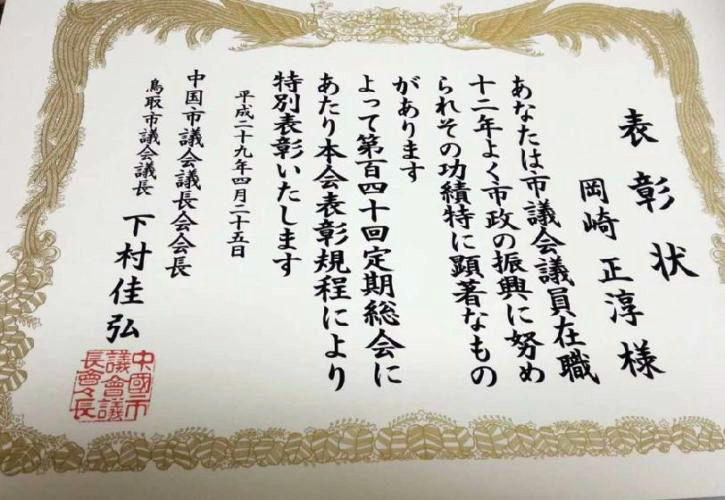 表彰状
岡崎 正淳 様
あなたは市議会議員在職
十二年よく市政の振興に努め
られその功績特に顕著なもの
があります
よって第百四十回定期総会に
あたり本会表彰規程により
特別表彰いたします
平成二十九年四月二十五日
中国市議会議長会会長
鳥取市議会議長 下村佳弘
中國市
議會議
長會々長